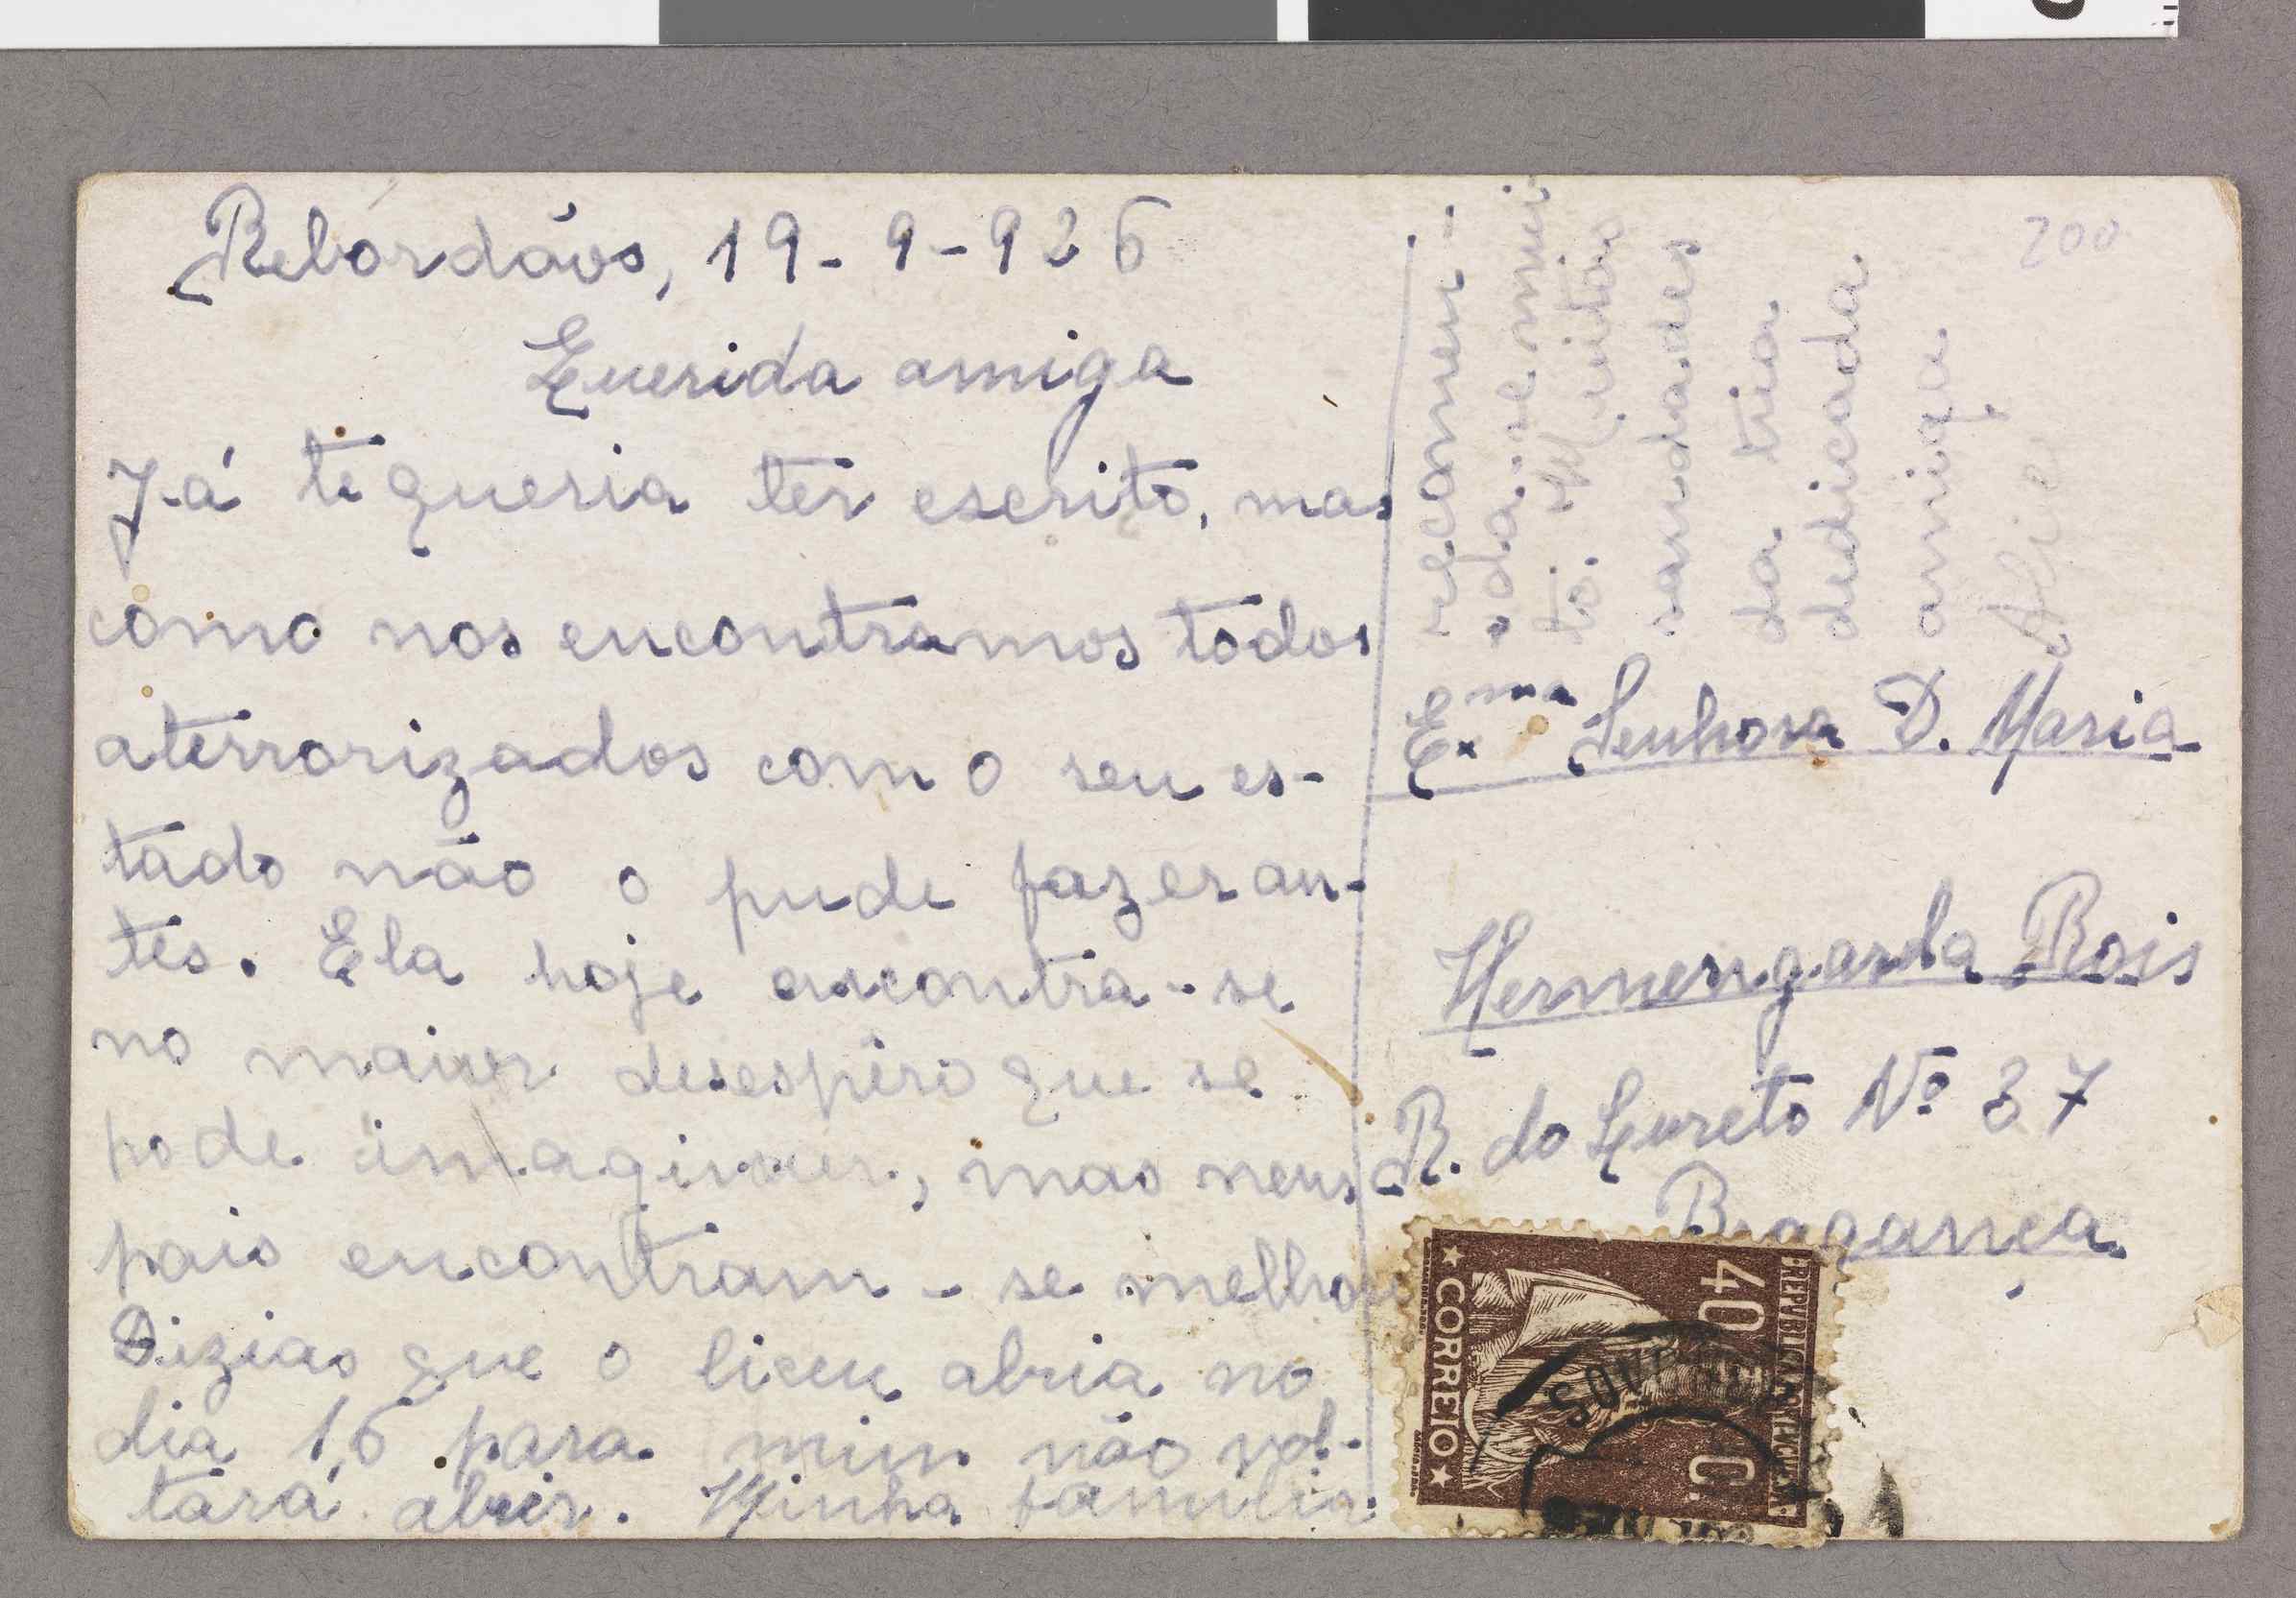 Rebordãos, 19-9-926
Querida amiga
Já te queria ter escrito, mas
como nos encontramos todos
aterrorizados com o seu es-
tado não o pude fazer an-
tes. Ela hoje encontra-se
no maior desespero que se
pode imaginar, mas meus
pais encontram-se melhores
Dizias que o liceu abria no
dia 16 para mim não vol-
tará abrir. Minha familia
recomen-
da-se mui
to. Muitas
saudades
da tua
dedicada
amiga
200
Ex.ma Senhora D. Maria
Hermengarda Rois
R. do Loreto Nº 37
Bragança
40 C.
★ CORREIO ★